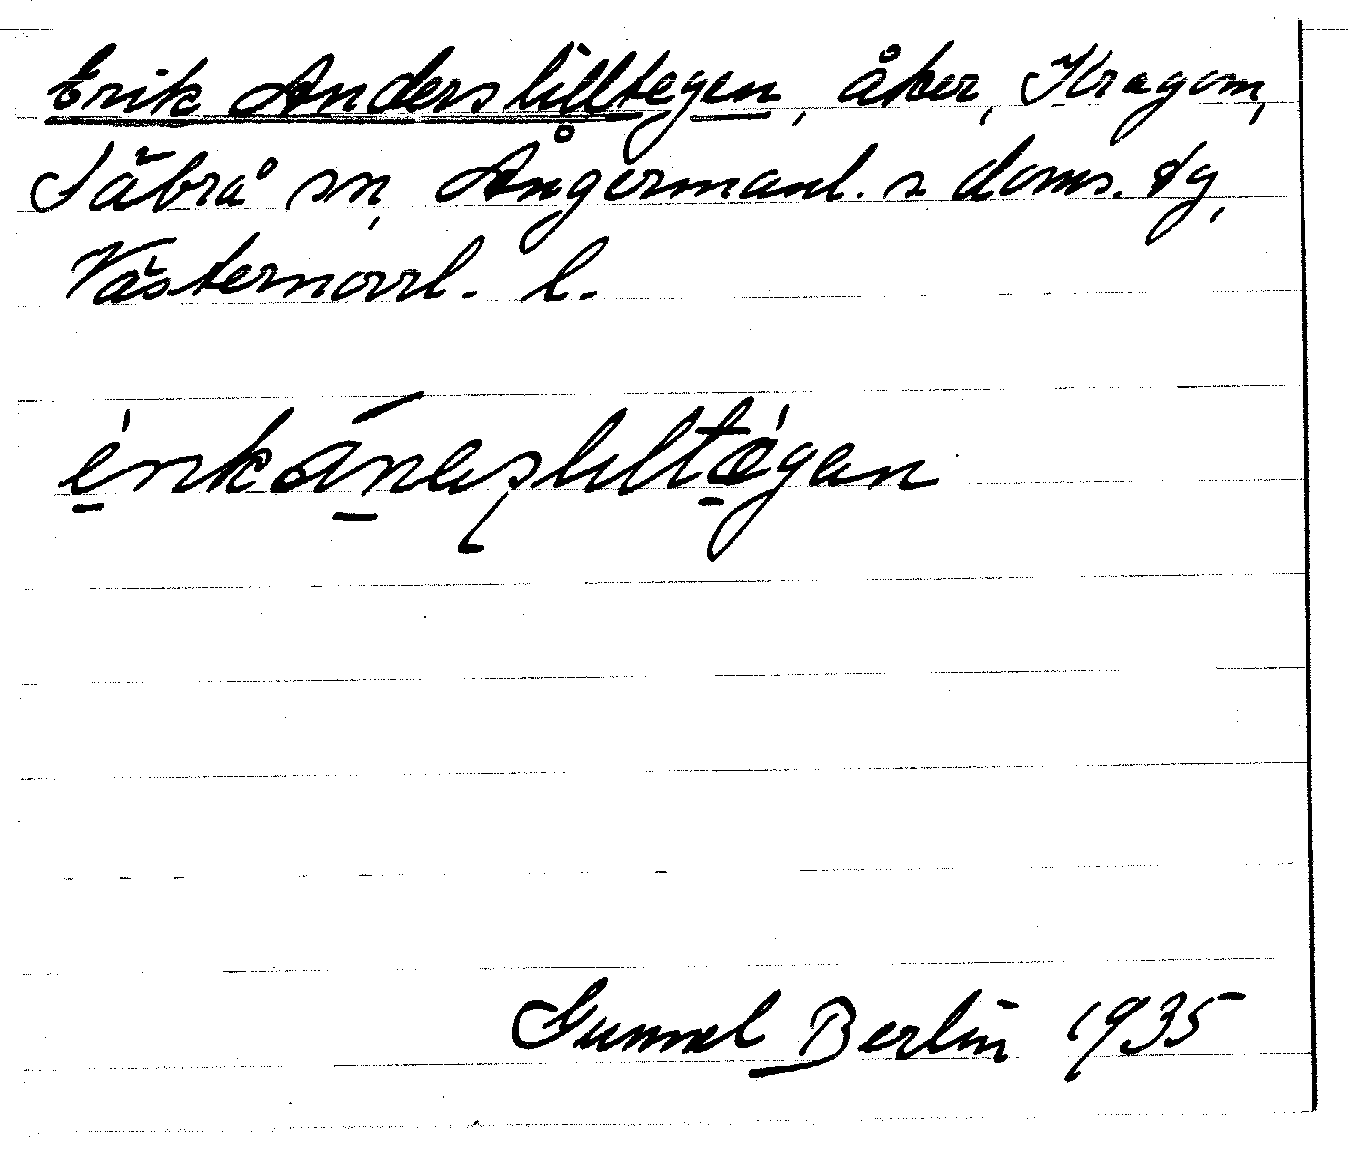 Erik Anderslilltegen, åker, Kragom,
Säbrå sn, Ångermanl. s doms. tg,
Västernorrl. l.
èrikánaslilltégan
Gunnel Berlin 1935